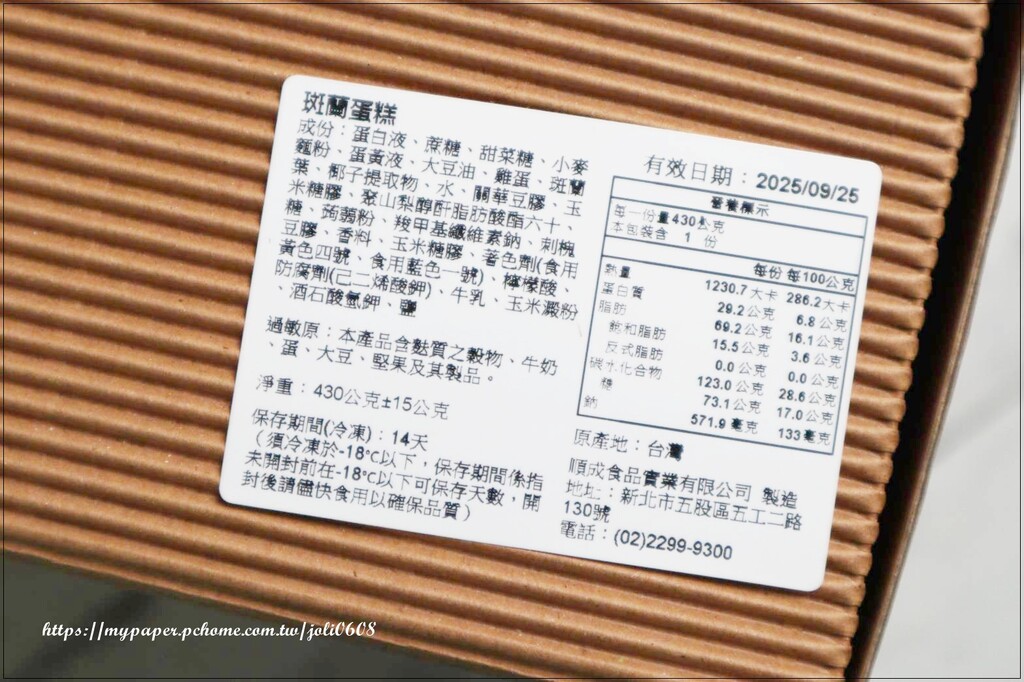 斑蘭蛋糕
成份：蛋白液、蔗糖、甜菜糖、小麥
麵粉、蛋黃液、大豆油、雞蛋、斑蘭
葉、椰子提取物、水、關華豆膠、玉
米糖膠、聚山梨醇酐脂肪酸酯六十、
糖、蒟蒻粉、羧甲基纖維素鈉、刺槐
豆膠、香料、玉米糖膠、著色劑(食用
黃色四號、食用藍色一號)、檸檬酸、
防腐劑(己二烯酸鉀)、牛乳、玉米澱粉
、酒石酸氫鉀、鹽
過敏原：本產品含麩質之穀物、牛奶
、蛋、大豆、堅果及其製品。
淨重：430公克±15公克
保存期間(冷凍)：14天
（須冷凍於-18℃以下，保存期間係指
未開封前在-18℃以下可保存天數，開
封後請儘快食用以確保品質）
有效日期：2025/09/25
營養標示
每一份量430公克
本包裝含 1 份
每份 每100公克
熱量 1230.7大卡 286.2大卡
蛋白質 29.2公克 6.8公克
脂肪 69.2公克 16.1公克
飽和脂肪 15.5公克 3.6公克
反式脂肪 0.0公克 0.0公克
碳水化合物 123.0公克 28.6公克
糖 73.1公克 17.0公克
鈉 571.9毫克 133毫克
原產地：台灣
順成食品實業有限公司 製造
地址：新北市五股區五工二路
130號
電話：(02)2299-9300
https://mypaper.pchome.com.tw/joli0608